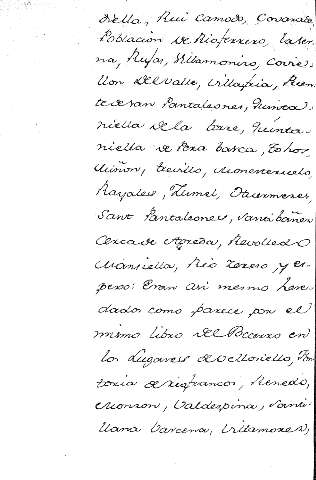 diella, Rui Camodo, Covarala,
Poblacion de Rioferrero, la Ser-
na, Rufas, Villamoniro, Covie-
llon del Valle, Villafria,
te de san Pantaleones, Quinta-
niella de la torre, Quinta-
niella de Pera basca, Tohos,
Miñon, trevillo, Monesteruelo,
Rayales, Humel, Oterineres,
Sant Pantaleones, Santibáñez
Cerca de Agreda, Revolledo
Mansiella, Rio Terero, y es-
pero: Eran asi mesmo here-
dados como parece por el
mismo libro del Becerro en
los Lugares de Vellosiello, Fon-
toria de riofrancos, Renedo,
Monzon, Valdespina, Santi-
llana barcena, Villamores,